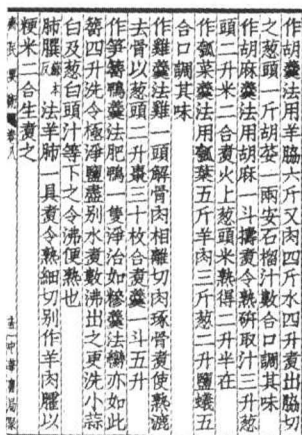 作胡羹法用羊脇六斤又肉四斤水四升煮出脇切
之葱頭一斤胡荽一兩安石榴汁數合口調其味
作胡麻羹法用胡麻一斗擣煮令熟硏取汁三升葱
頭二升米二合煮火上葱頭米熟得二升半在
作瓠菜羹法用瓠葉五斤羊肉三斤葱二升鹽蟻五
合口調其味
作雞羹法雞一頭解骨肉相離切肉琢骨煮使熟漉
去骨以葱頭二升棗三十枚合煮羹一斗五升
作笋䈚鴨羹法肥鴨一隻淨治如糝羹法臠亦如此
䈚四升洗令極淨鹽盡別水煮數沸出之更洗小蒜
白及葱白頭汁等下之令沸便熟也
肺䐑蘇本反法羊肺一具煮令熟細切別作羊肉臛以
粳米二合生煮之
齊民要術 卷八
中華書局聚